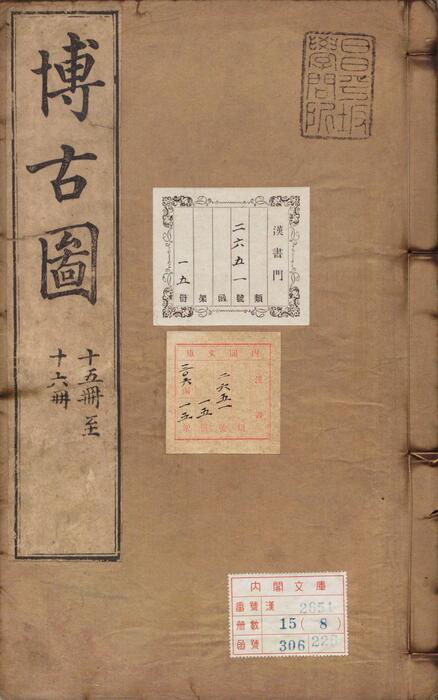 博古圖
十五冊至
十六冊
昌平坂
學問所
漢書門
類
二六五一號
函
架
一五冊
内閣文庫
漢書
二六五一
一五
三〇六
一五
内閣文庫
番號 漢 2651
冊數 15(8)
函號 306 228